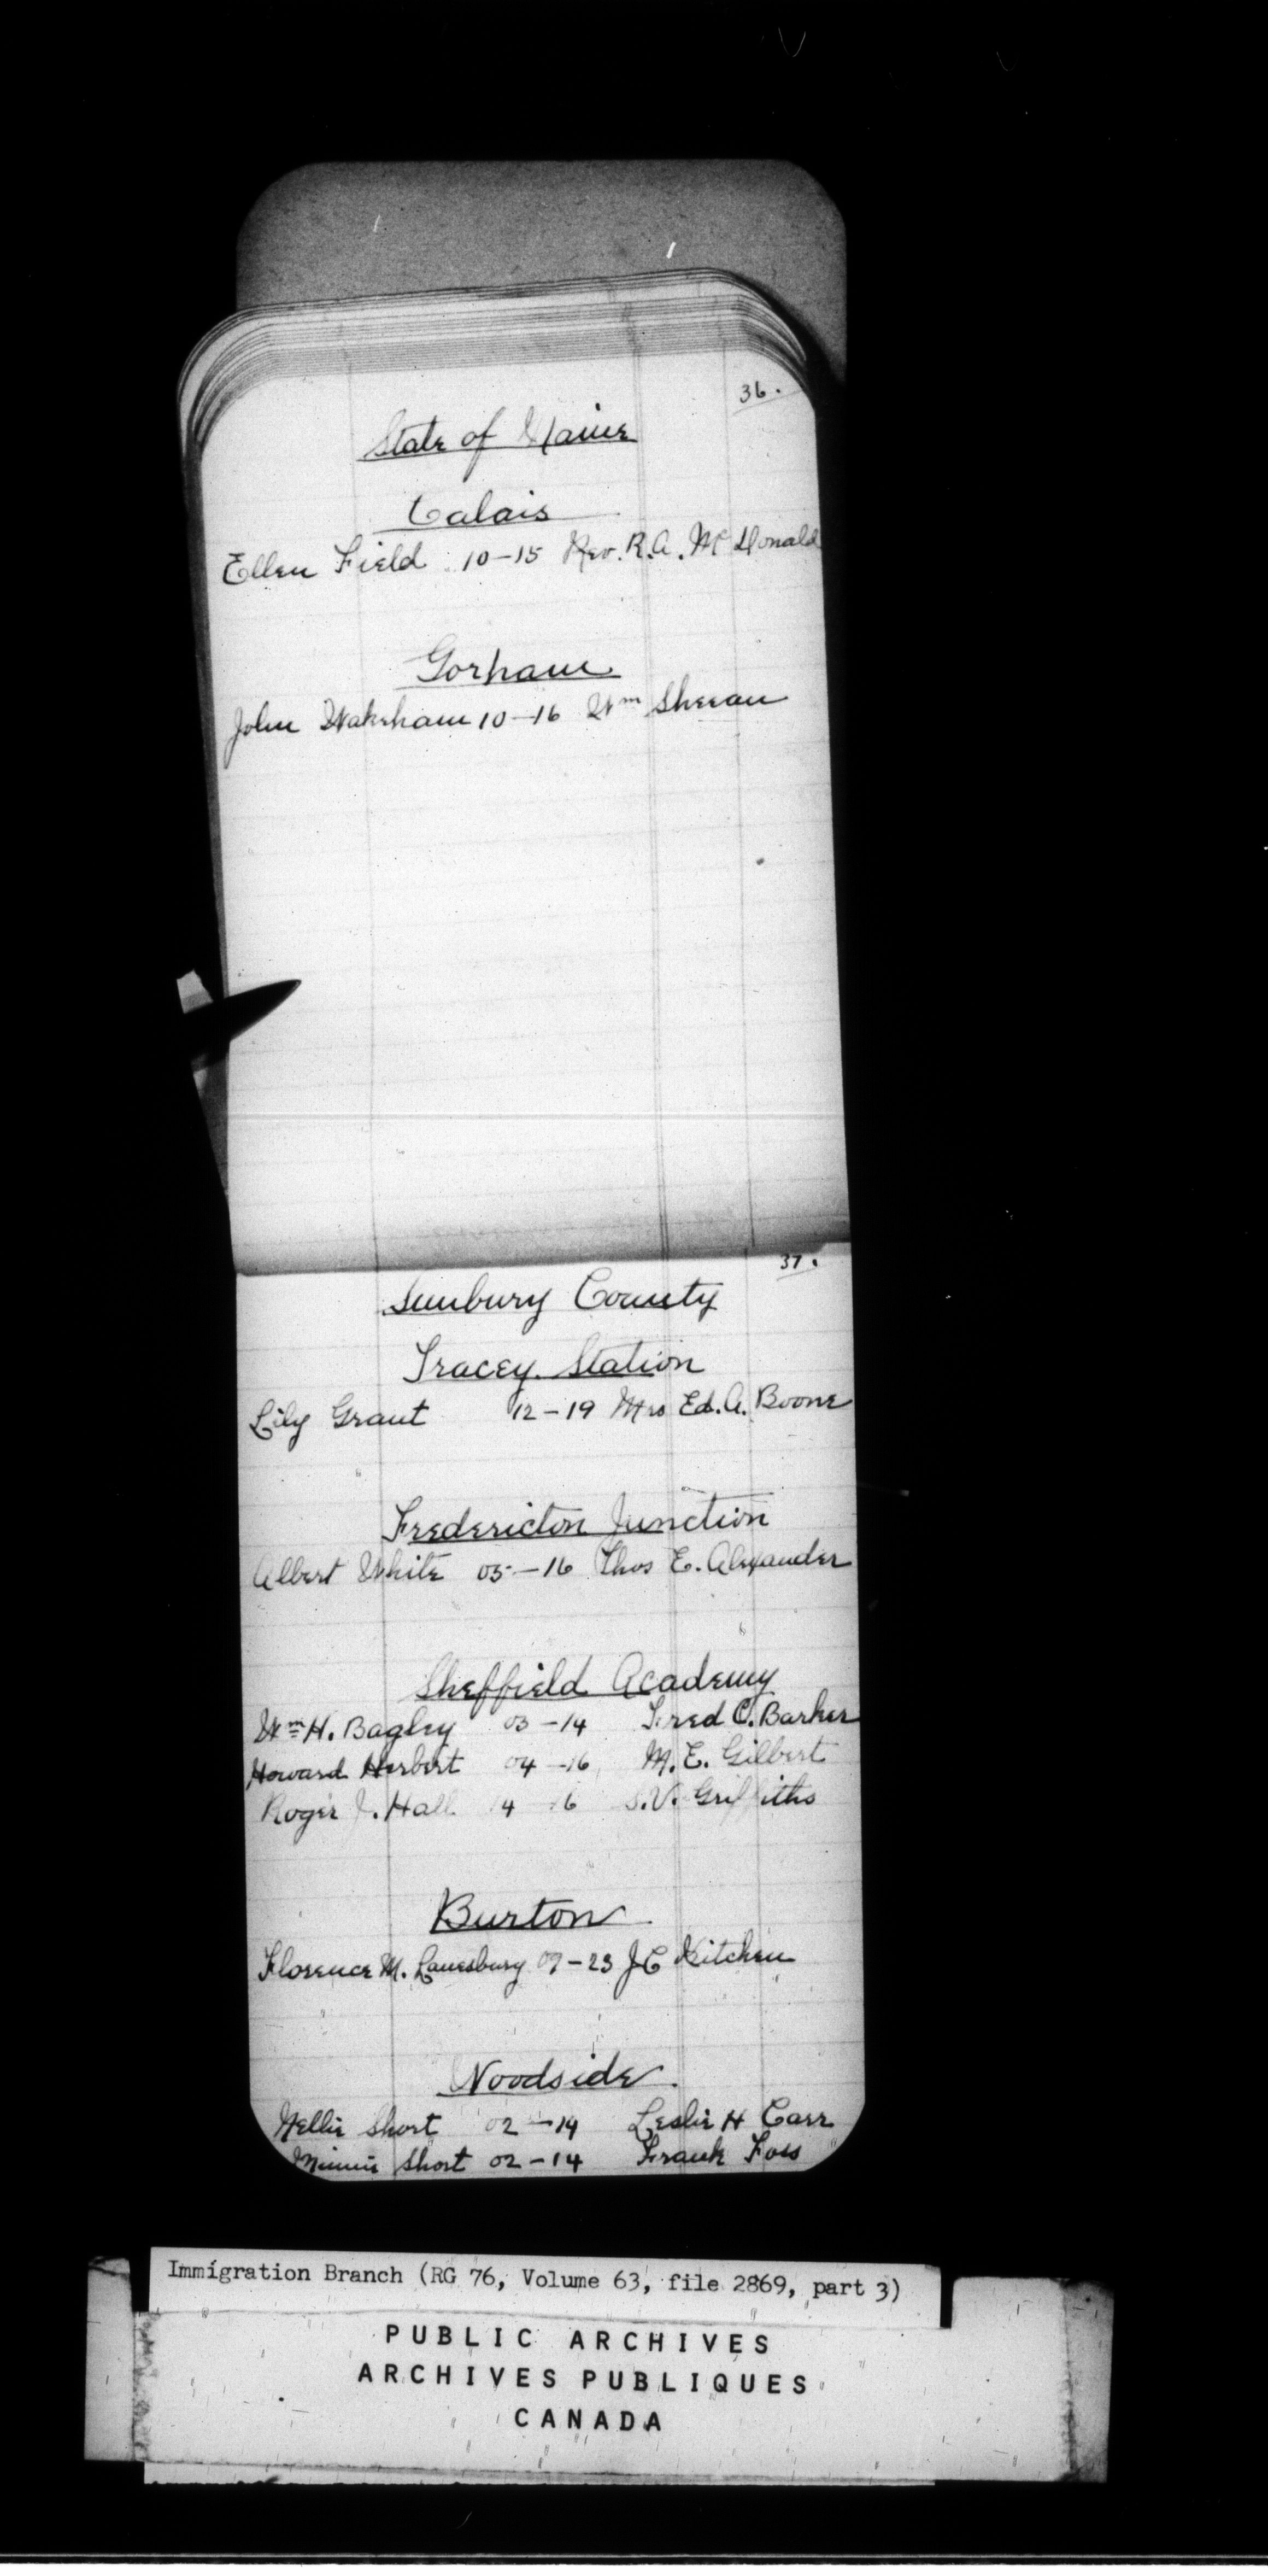 36.
State of Maine
Calais
Ellen Field 10-15 Rev. R.A. McDonald
Gorham
John Wakeham 10-16 Wm Sheean
37.
Sunbury County
Tracey Station
Lily Grant 12-19 Mrs Ed. A. Boone
Fredericton Junction
Albert White 05-16 Thos E. Alexander
Sheffield Academy
Wm H. Bagley 03-14 Fred C. Barker
Howard Herbert 04-16 M.E. Gilbert
Roger J. Hall 4 16 S.V. Griffiths
Burton
Florence M. Lanesbury 07-23 J C Kitchen
Woodside
Nellie Short 02-14 Leslie H Carr
Minnie Short 02-14 Frank Foss
Immigration Branch (RG 76, Volume 63, file 2869, part 3)
PUBLIC ARCHIVES
ARCHIVES PUBLIQUES
CANADA